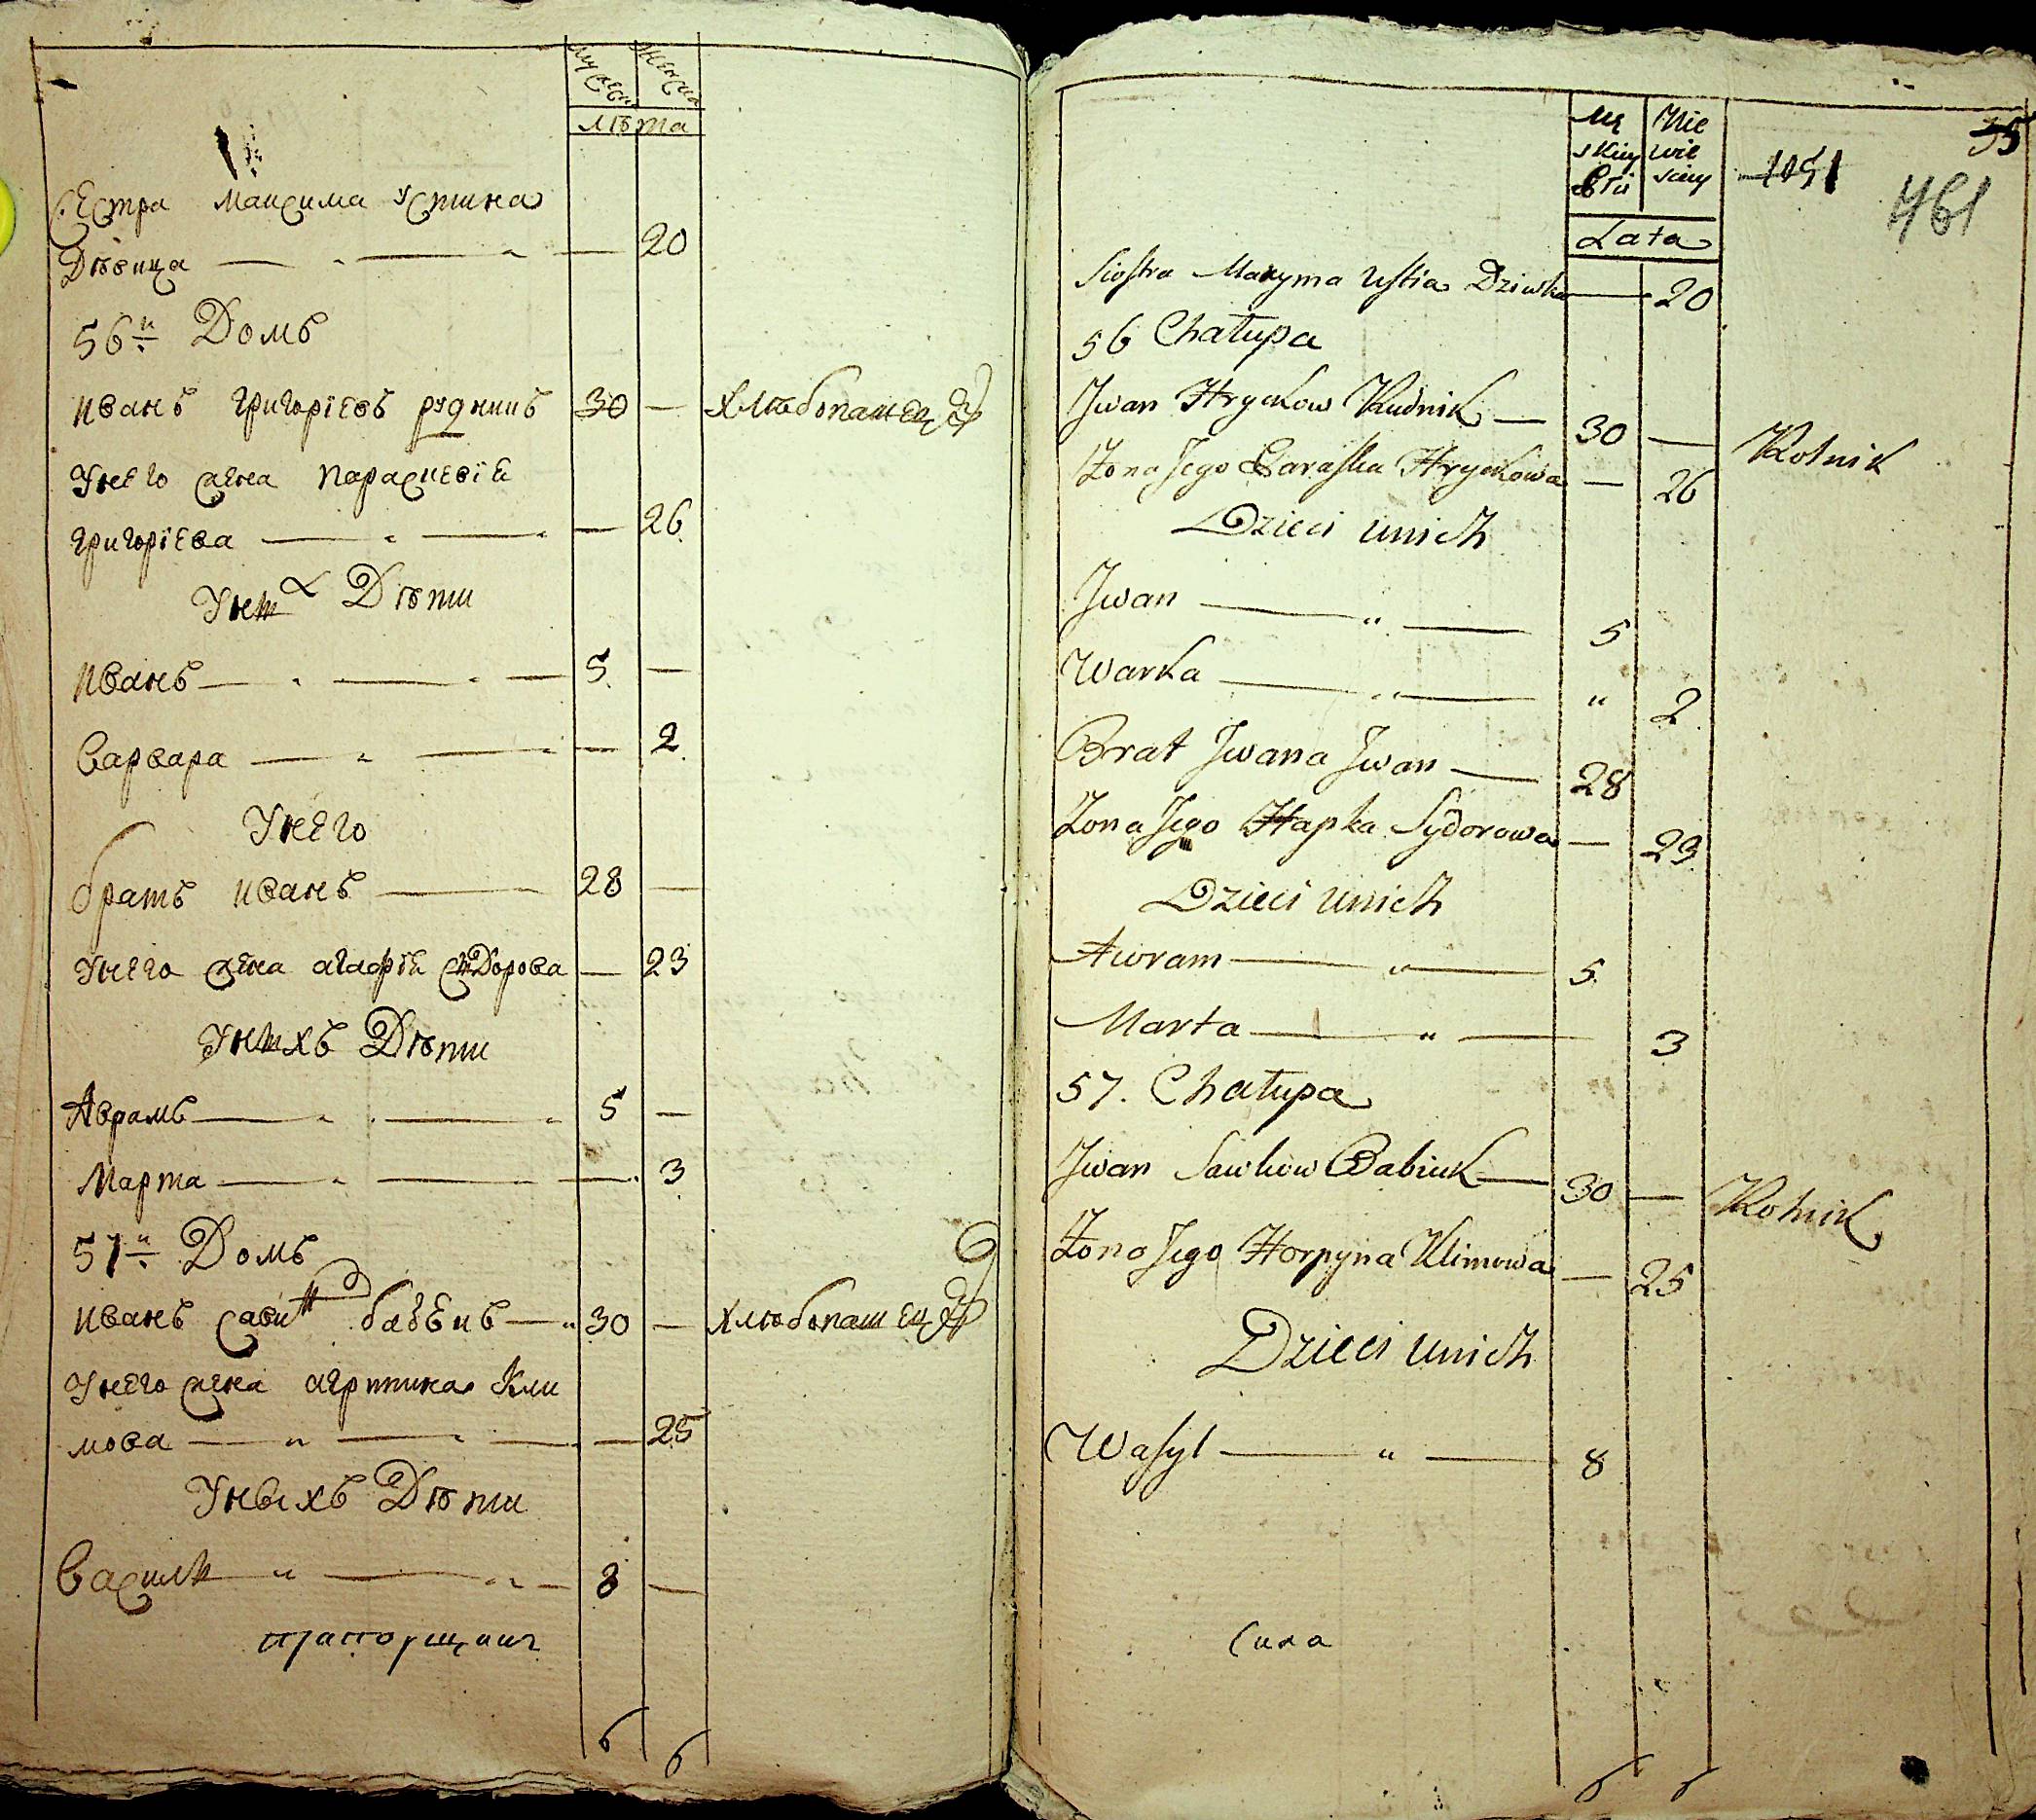 мужеска женска
лѣта
Сестра Максима Устина
Дѣвица — — — 20
56й Домъ
Иванъ григорїевъ рудникъ 30 — Хлѣбопашецъ
Унего жена Параскевїя
григорїева — — — 26.
Унихъ Дѣти
Иванъ — — — 5. —
Варвара — — — 2.
Унего
братъ иванъ — 28 —
Унего жена агафїя Сидорова — 23
Унихъ Дѣти
Аврамъ — — 5 —
Марта — — — 3
57й Домъ
Иванъ Савин бабѣкъ — 30 — Хлѣбопашецъ
Унего жена агрипина Кли
мова — — — — 25
Уныхъ Дѣти
Василий — — 8 —
прапорщикъ
6 6
55
Mę Nie
skiey wie
Płci sciey
1051
461
Lata
Siostra Maxyma Ustia Dziwka — 20
56 Chałupa
Jwan Hryckow Rudnik — 30 — Rolnik
Żona Jego Paraska Hryckowa — 26
Dzieci unich
Jwan — " — 5
Warka — " — " 2
Brat Jwana Jwan — 28
Żona Jego Hapka Sydorowa — 23
Dzieci unich
Awram — " — 5
Marta — " — 3
57. Chałupa
Jwan Sawkow Babiuk — 30 — Rolnik
Żona Jego Horpyna Klimowa — 25
Dzieci unich
Wasyl — " — 8
Сика
6 6